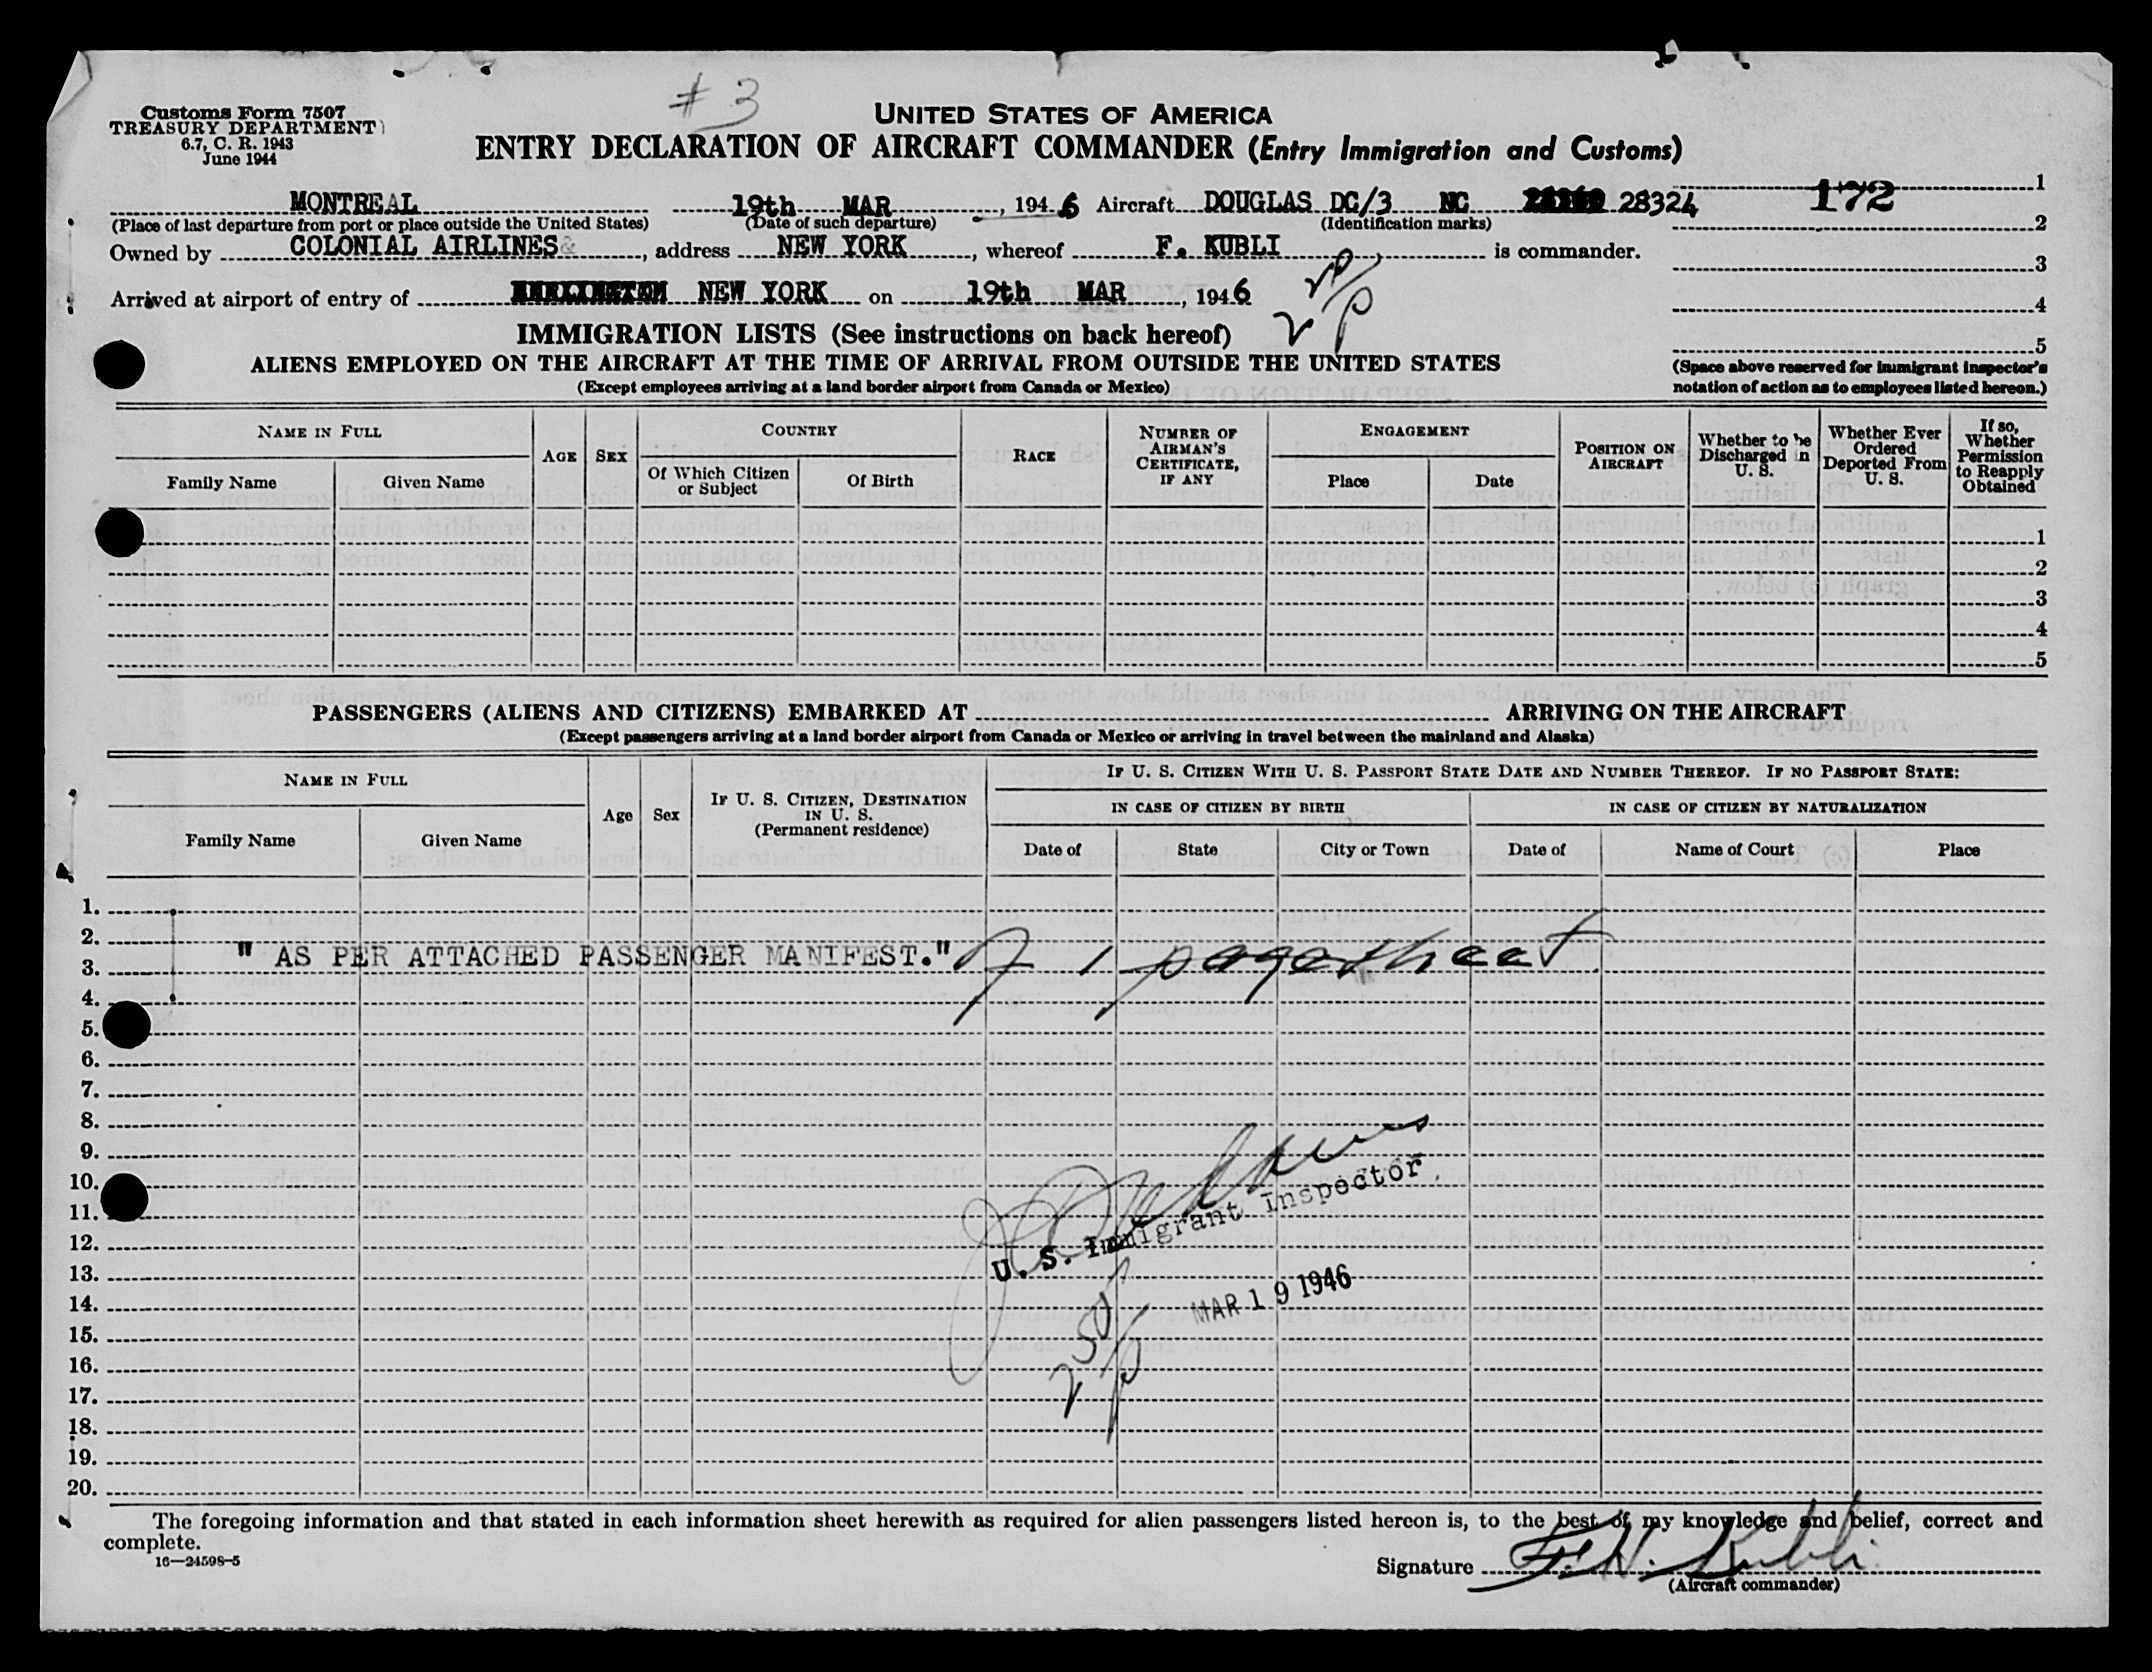 # 3
Customs Form 7507
TREASURY DEPARTMENT
6.7, C. R. 1943
June 1944
UNITED STATES OF AMERICA
ENTRY DECLARATION OF AIRCRAFT COMMANDER (Entry Immigration and Customs)
MONTREAL 19th MAR, 1946 Aircraft DOUGLAS DC/3 NC 28324
(Place of last departure from port or place outside the United States) (Date of such departure) (Identification marks)
172
1
2
3
4
5
Owned by COLONIAL AIRLINES, address NEW YORK, whereof F. KUBLI is commander.
Arrived at airport of entry of NEW YORK on 19th MAR, 1946
IMMIGRATION LISTS (See instructions on back hereof)
ALIENS EMPLOYED ON THE AIRCRAFT AT THE TIME OF ARRIVAL FROM OUTSIDE THE UNITED STATES
(Except employees arriving at a land border airport from Canada or Mexico)
(Space above reserved for immigrant inspector's
notation of action as to employees listed hereon.)
NAME IN FULL
Family Name
Given Name
AGE
SEX
COUNTRY
Of Which Citizen
or Subject
Of Birth
RACE
NUMBER OF
AIRMAN'S
CERTIFICATE,
IF ANY
ENGAGEMENT
Place
Date
POSITION ON
AIRCRAFT
Whether to be
Discharged in
U. S.
Whether Ever
Ordered
Deported From
U. S.
If so,
Whether
Permission
to Reapply
Obtained
1
2
3
4
5
PASSENGERS (ALIENS AND CITIZENS) EMBARKED AT ARRIVING ON THE AIRCRAFT
(Except passengers arriving at a land border airport from Canada or Mexico or arriving in travel between the mainland and Alaska)
NAME IN FULL
Family Name
Given Name
Age
Sex
IF U. S. CITIZEN, DESTINATION
IN U. S.
(Permanent residence)
IF U. S. CITIZEN WITH U. S. PASSPORT STATE DATE AND NUMBER THEREOF. IF NO PASSPORT STATE:
IN CASE OF CITIZEN BY BIRTH
IN CASE OF CITIZEN BY NATURALIZATION
Date of
State
City or Town
Date of
Name of Court
Place
1.
2.
" AS PER ATTACHED PASSENGER MANIFEST." of 1 page sheet
3.
4.
5.
6.
7.
8.
9.
10.
11.
12.
13.
14.
15.
16.
17.
18.
19.
20.
U. S. Immigrant Inspector.
MAR 19 1946
The foregoing information and that stated in each information sheet herewith as required for alien passengers listed hereon is, to the best of my knowledge and belief, correct and
complete.
16—24598-5
Signature F. W. Kubli
(Aircraft commander)